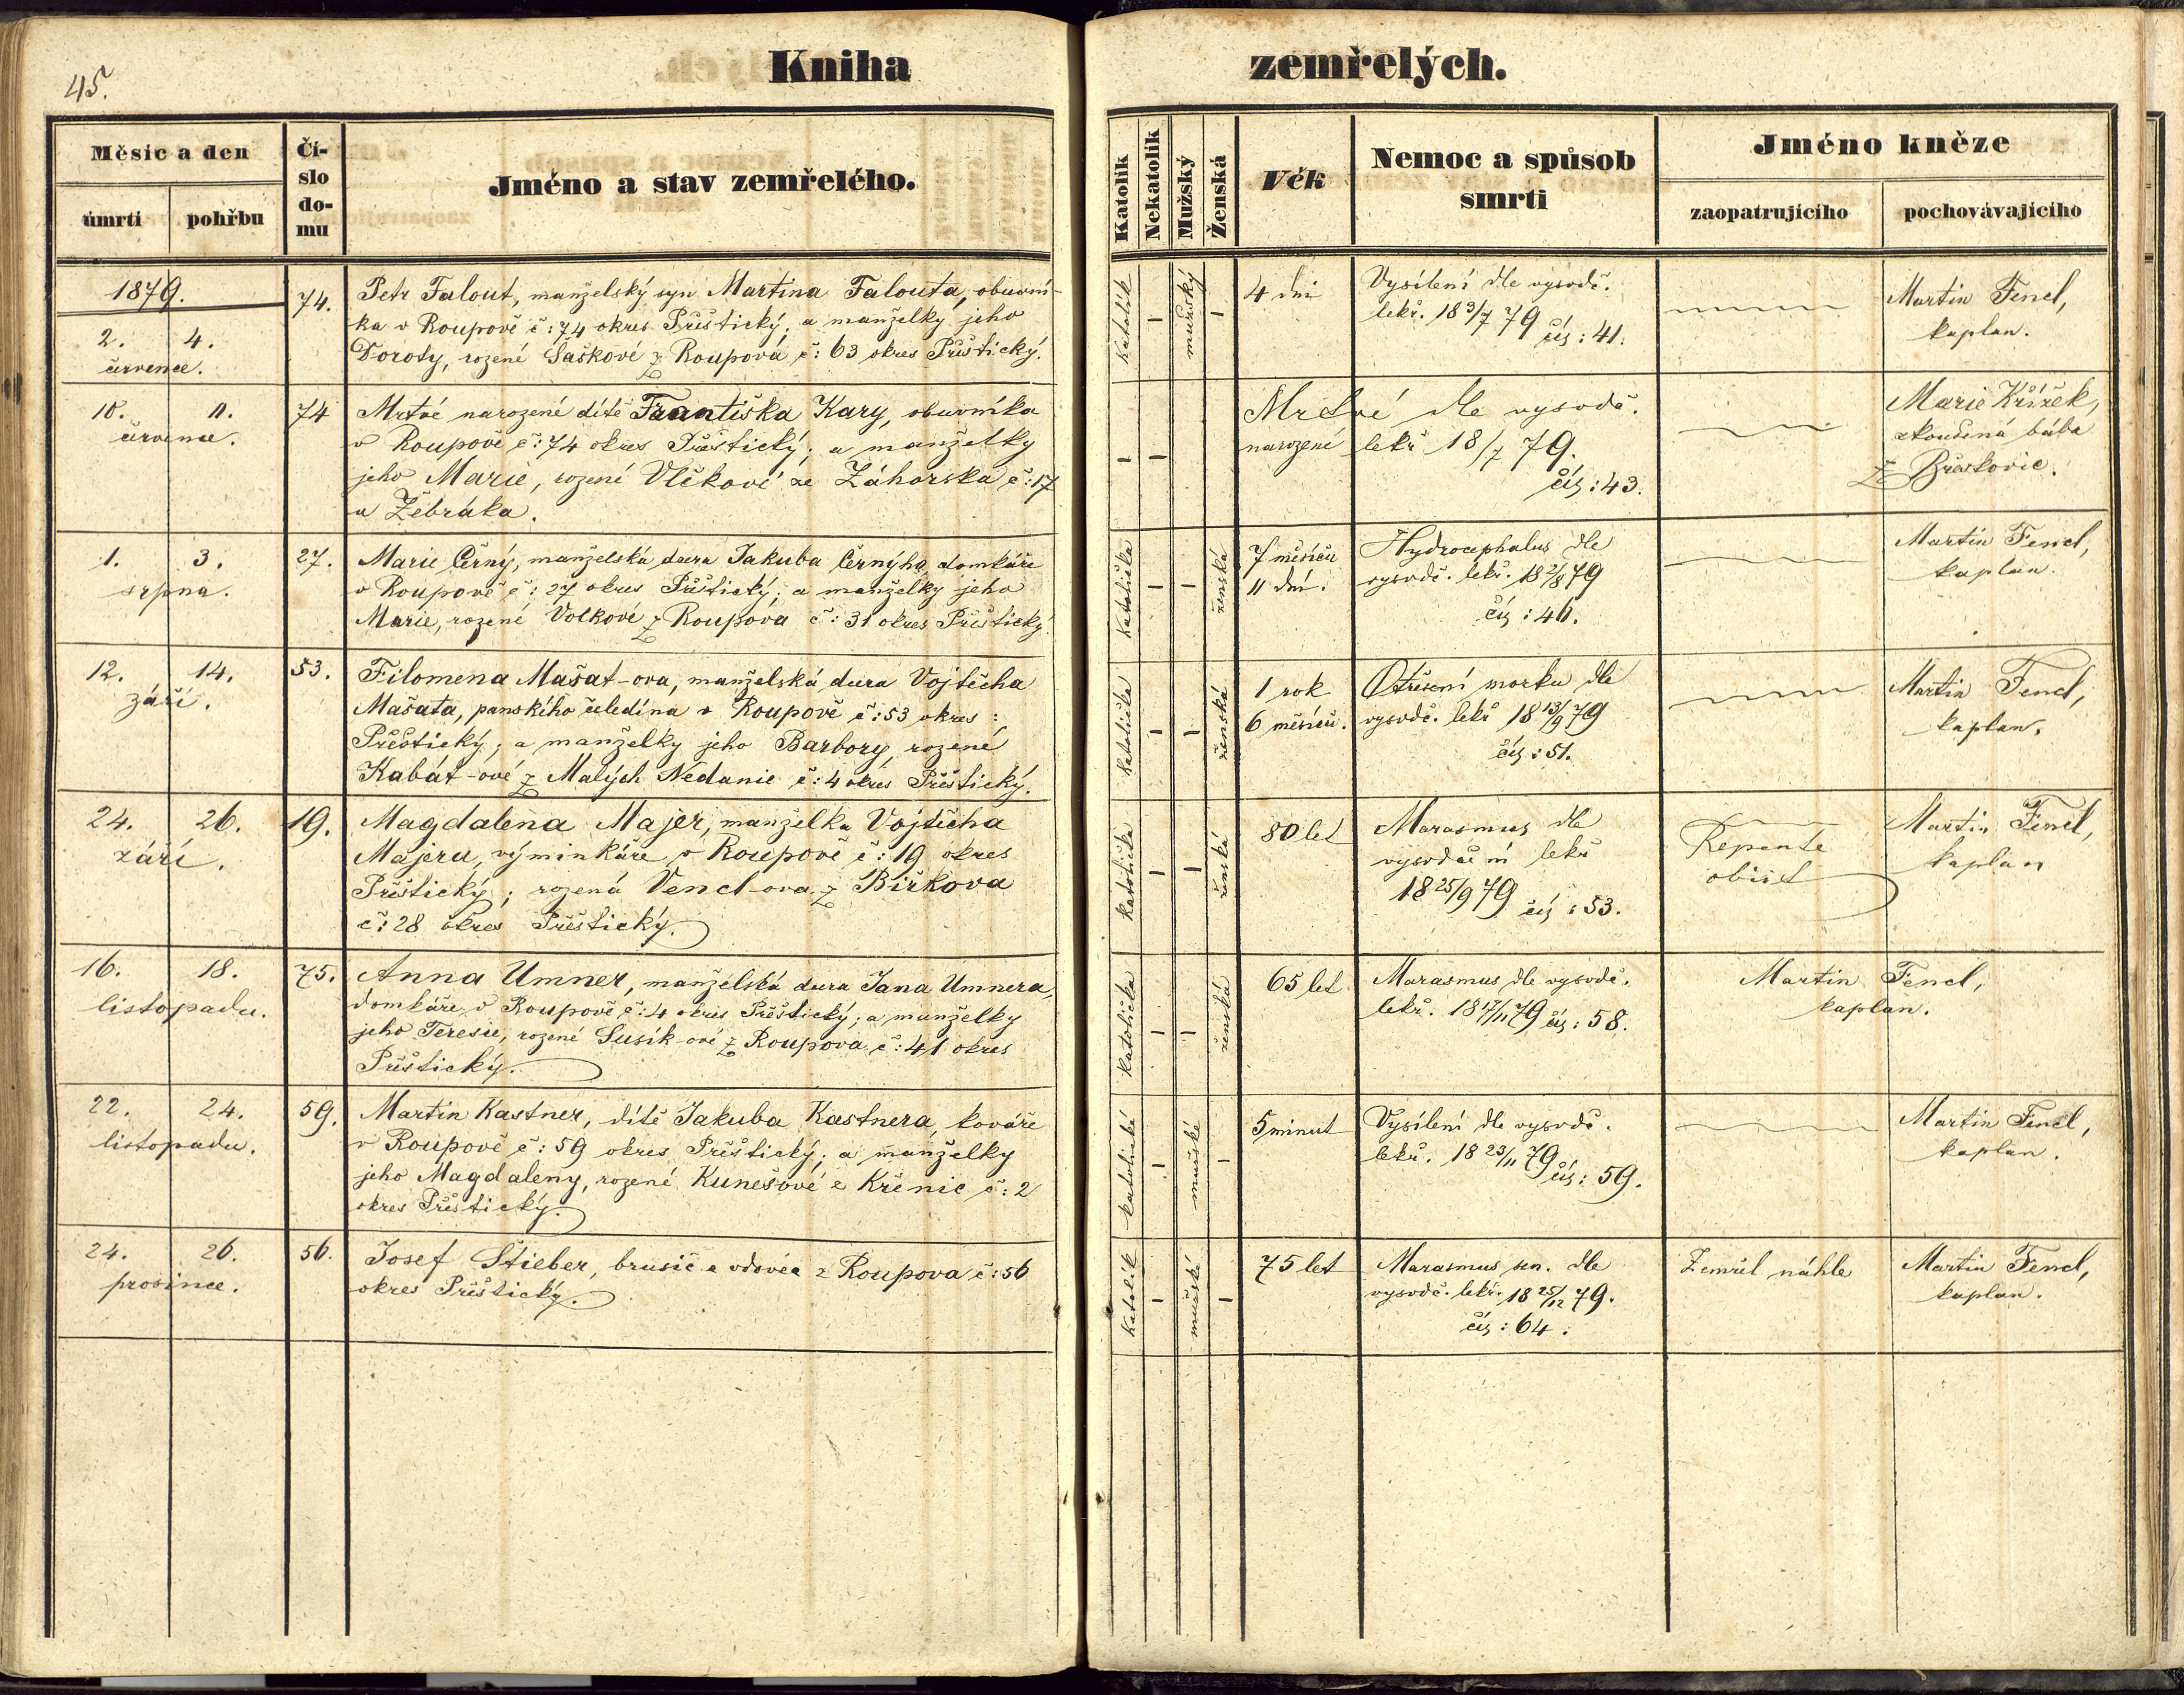 45.
Kniha zemřelých.
Měsíc a den
úmrtí
pohřbu
Čí-
slo
do-
mu
Jméno a stav zemřelého.
Katolík
Nekatolík
Mužský
Ženská
Věk
Nemoc a spůsob
smrti
Jméno kněze
zaopatrujícího
pochovávajícího
1879.
2. 4.
července.
74.
Petr Falout, manželský syn Martina Falouta, obuvní-
ka v Roupově č: 74 okres Přeštický; a manželky jeho
Doroty, rozené Šaškové z Roupova č: 63 okres Přeštický.
Katolík
—
mužský
—
4 dni
Vysílení dle vysvdč.
lekř. 18 3/7 79 čís: 41.
Martin Fencl,
kaplan.
10. 11.
července.
74
Mrtvě narozené dítě Františka Kary, obuvníka
v Roupově č: 74 okres Přeštický; a manželky
jeho Marie, rozené Vlčkové ze Záhorska č: 17
u Žebráka.
— —
Mrtvé dle vysvdč.
narozené lekř 18/7 79.
čís: 43.
Marie Křížek,
zkoušená bába
z Břeskovic.
1. 3.
srpna.
27.
Marie Černý, manželská dcera Jakuba Černýho, domkáře
v Roupově č: 27 okres Přeštický; a manželky jeho
Marie, rozené Volkové z Roupova č: 31 okres Přeštický.
Katolička
—
—
ženská
7 měsíců
11 dní.
Hydrocephalus dle
vysvdč. lekř. 18 2/8 79
čís: 46.
Martin Fencl,
kaplan.
12. 14.
září.
53.
Filomena Mašat-ova, manželská dcera Vojtěcha
Mašata, panského čeledína v Roupově č: 53 okres:
Přeštický; a manželky jeho Barbory, rozené
Kabát-ové z Malých Nedanic č: 4 okres Přeštický.
katolička
—
—
ženská
1 rok
6 měsíců.
Otřesení morku dle
vysvdč. lekř 18 13/9 79
čís: 51.
Martin Fencl,
kaplan.
24. 26.
září.
19.
Magdalena Majer, manželka Vojtěcha
Majera, výminkáře v Roupově č: 19 okres
Přeštický; rozená Vencl-ova z Biřkova
č: 28 okres Přeštický.
katolička
—
—
ženská
80 let
Marasmus dle
vysvdčení lekř
18 25/9 79 čís: 53.
Repente
obiit
Martin Fencl,
kaplan
16. 18.
listopadu.
75.
Anna Umner, manželská dcera Jana Umnera,
domkáře v Roupově č: 4 okres Přeštický; a manželky
jeho Teresie, rozené Susík-ové z Roupova č: 41 okres
Přeštický.
katolička
—
—
ženská
65 let
Marasmus dle vysvdč.
lekř. 18 17/11 79 čís: 58.
Martin Fencl,
kaplan.
22. 24.
listopadu.
59.
Martin Kastner, dítě Jakuba Kastnera, kováře
v Roupově č: 59 okres Přeštický; a manželky
jeho Magdaleny, rozené Kunešové z Křenic č: 2
okres Přeštický.
katolické
—
mužské
—
5 minut
Vysílení dle vysvdč.
lekř. 18 23/11 79 čís: 59.
Martin Fencl,
kaplan.
24. 26.
prosince.
56.
Josef Štieber, brusič a vdovec z Roupova č: 56
okres Přeštický.
Katolík
—
mužské
—
75 let
Marasmus sen. dle
vysvdč. lekř. 18 25/12 79.
čís: 64.
Zemřel náhle
Martin Fencl,
kaplan.